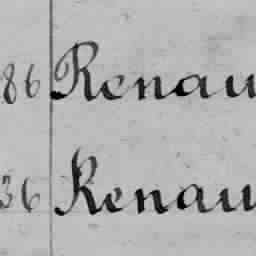 86 Renau
36 Renau